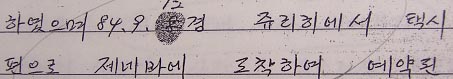 12
하였으며 84. 9. 경 쮸리히에서 택시
편으로 제네바에 도착하여 예약된